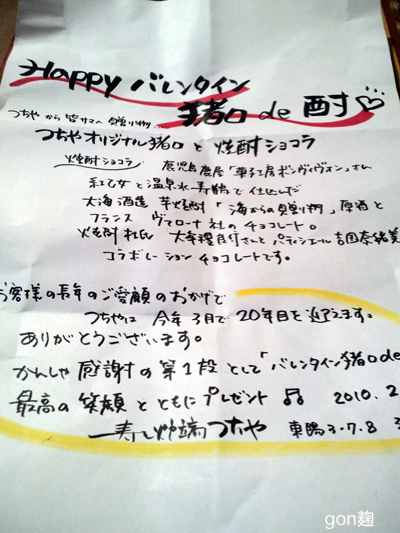 Happy バレンタイン
猪口 de 酎♡
つちやから皆サマへ贈り物…
つちやオリジナル猪口と焼酎ショコラ
焼酎ショコラ 鹿児島鹿屋「菓子工房ボンヴィヴォン」さん
紅乙女と温泉水寿鶴で仕込んだ
大海酒造 芋焼酎「海からの贈り物」原酒と
フランス ヴァローナ社のチョコレート。
焼酎杜氏 大牟禮良行さんとパティシエール吉国奈緒美
コラボレーションチョコレートです。
お客様の長年のご愛顧のおかげで
つちやは 今年3月で20年目を迎えます。
ありがとうございます。
かんしゃ 感謝の第1段として「バレンタイン猪口de
最高の笑顔とともにプレゼント♫ 2010.2
寿し炉端つちや 東鴨3-7-8
gon麹